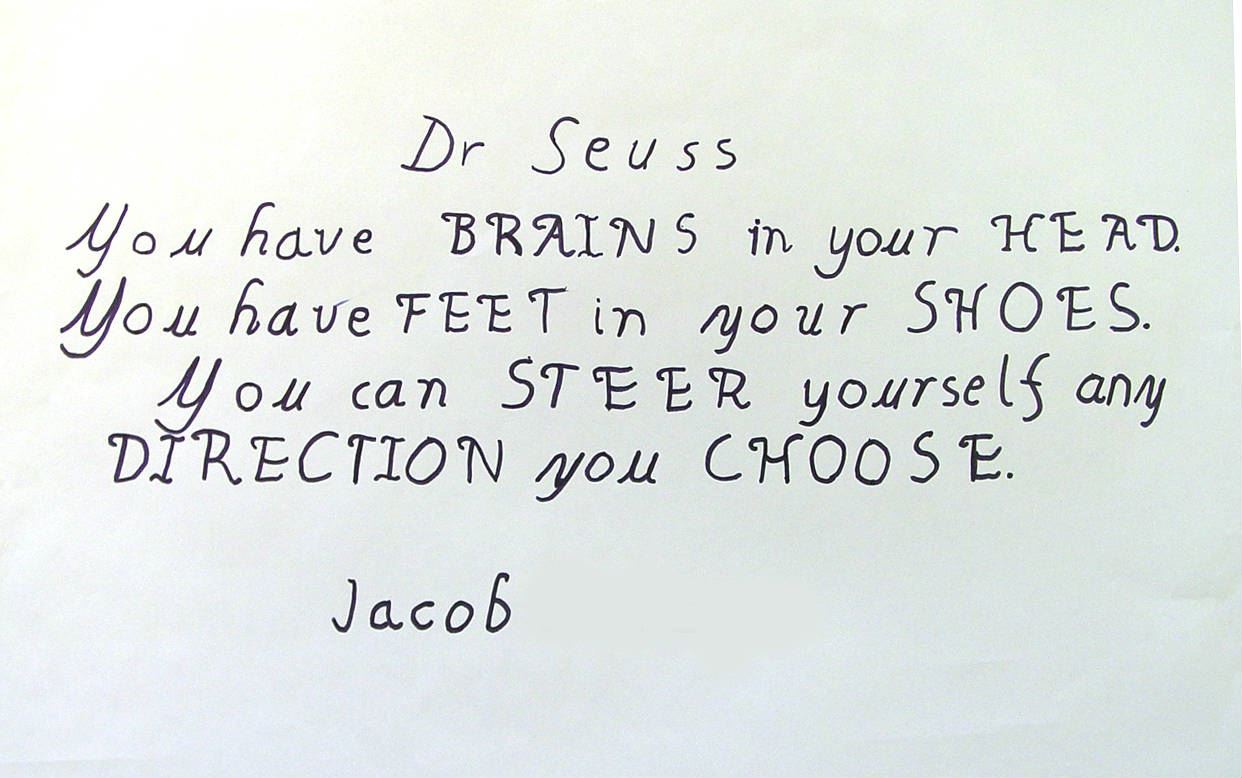 Dr Seuss
You have BRAINS in your HEAD.
You have FEET in your SHOES.
You can STEER yourself any
DIRECTION you CHOOSE.
Jacob